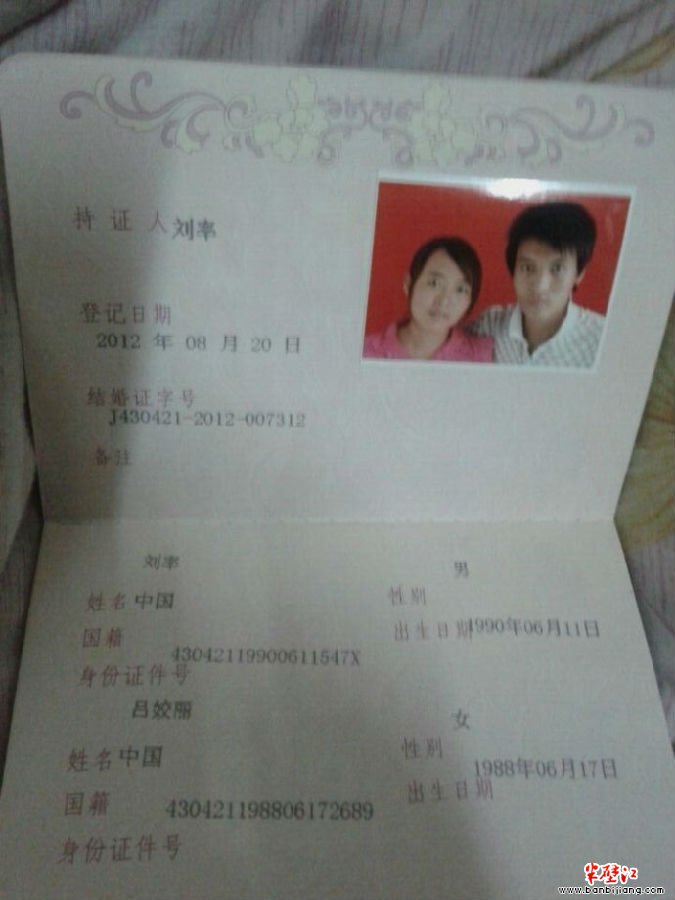 持证人 刘率
登记日期
2012 年 08 月 20 日
结婚证字号
J430421-2012-007312
备注
刘率 男
姓名 中国 性别
国籍 出生日期 1990年06月11日
43042119900611547X
身份证件号
吕姣丽 女
姓名 中国 性别
1988年06月17日
国籍 出生日期
430421198806172689
身份证件号
半壁江
www.banbijiang.com